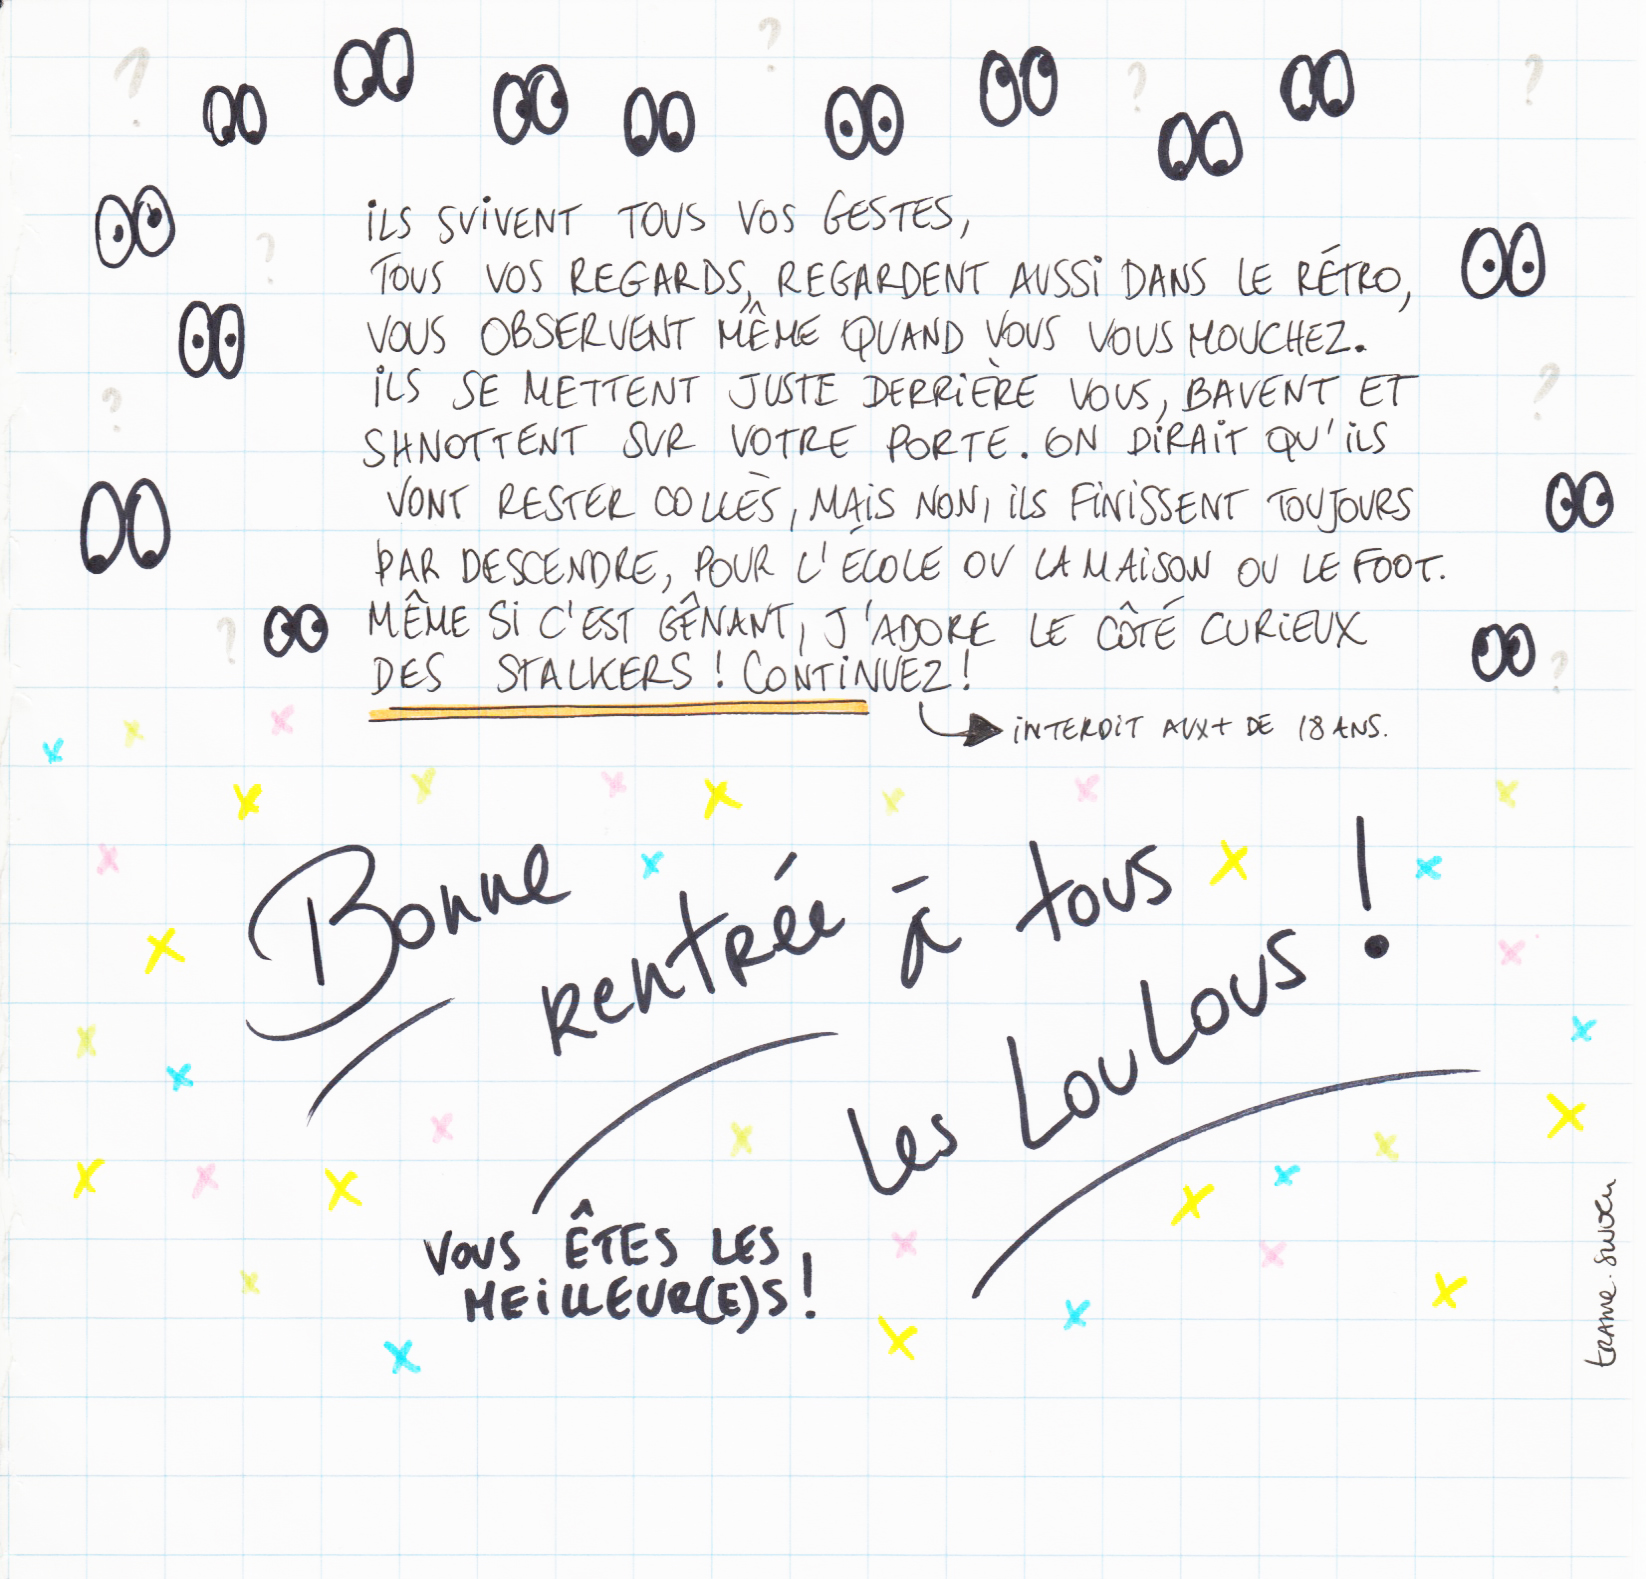 ILS SUIVENT TOUS VOS GESTES,
TOUS VOS REGARDS, REGARDENT AUSSI DANS LE RÉTRO,
VOUS OBSERVENT MÊME QUAND VOUS VOUS MOUCHEZ.
ILS SE METTENT JUSTE DERRIÈRE VOUS, BAVENT ET
SHNOTTENT SUR VOTRE PORTE. ON DIRAIT QU'ILS
VONT RESTER COLLÉS, MAIS NON, ILS FINISSENT TOUJOURS
PAR DESCENDRE, POUR L'ÉCOLE OU LA MAISON OU LE FOOT.
MÊME SI C'EST GÊNANT, J'ADORE LE CÔTÉ CURIEUX
DES STALKERS ! CONTINUEZ !
INTERDIT AUX + DE 18 ANS.
Bonne
rentrée à tous
Les LouLous !
VOUS ÊTES LES
MEILLEUR(E)S !